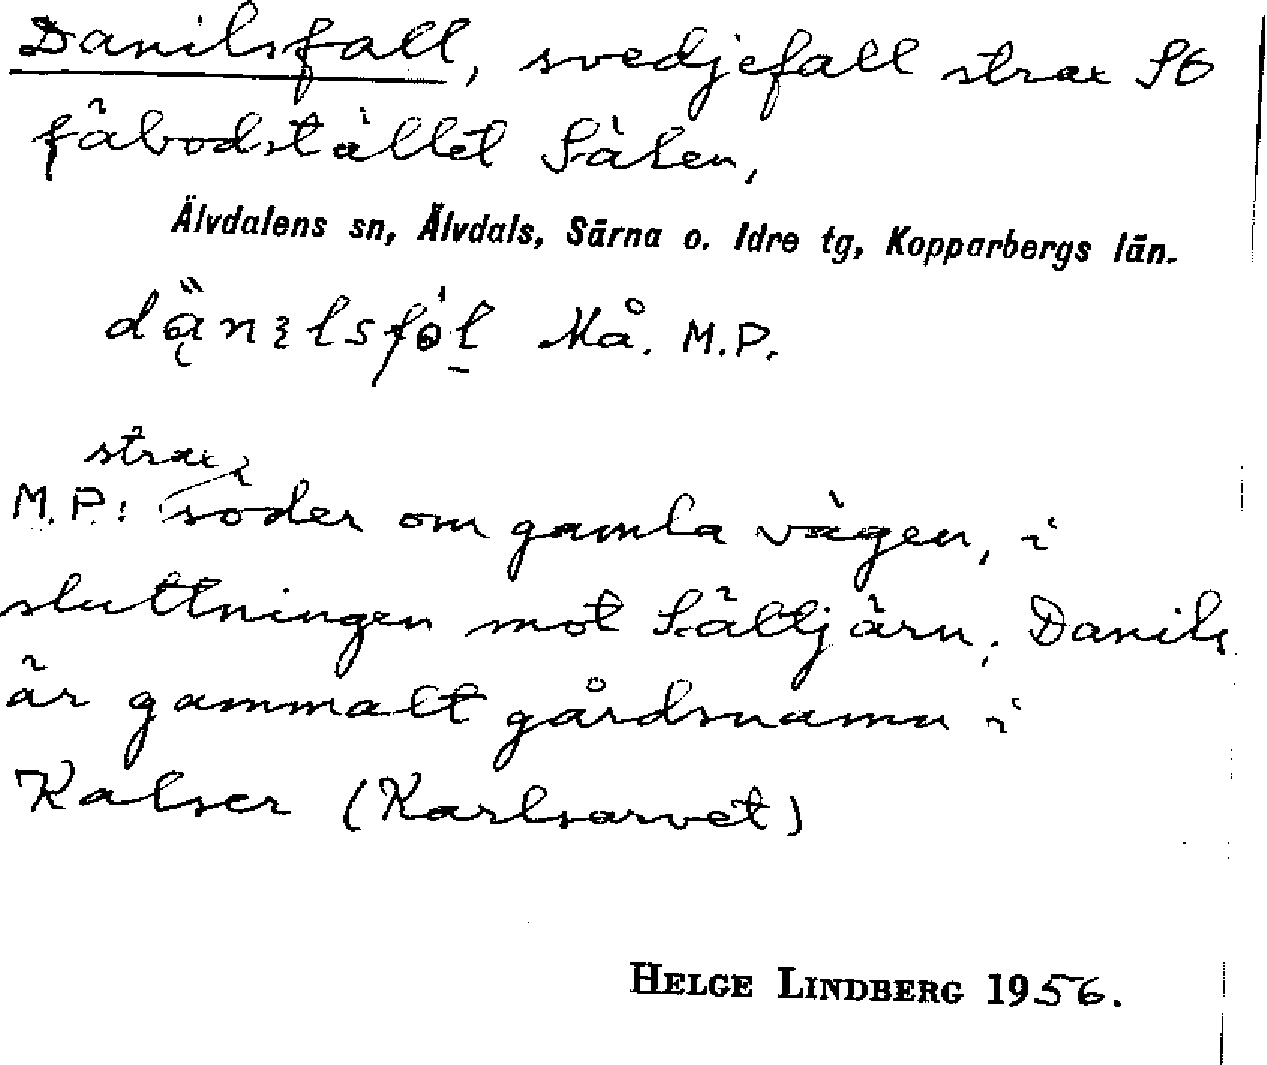 Danilsfall, svedjefall strax SO
fäbodstället Sälen,
Älvdalens sn, Älvdals, Särna o. Idre tg, Kopparbergs län.
Må. M.P.
strax
M.P.: söder om gamla vägen, i
sluttningen mot Sältjärn; Danils
är gammalt gårdsnamn i
Kalser (Karlsarvet)
HELGE LINDBERG 1956.